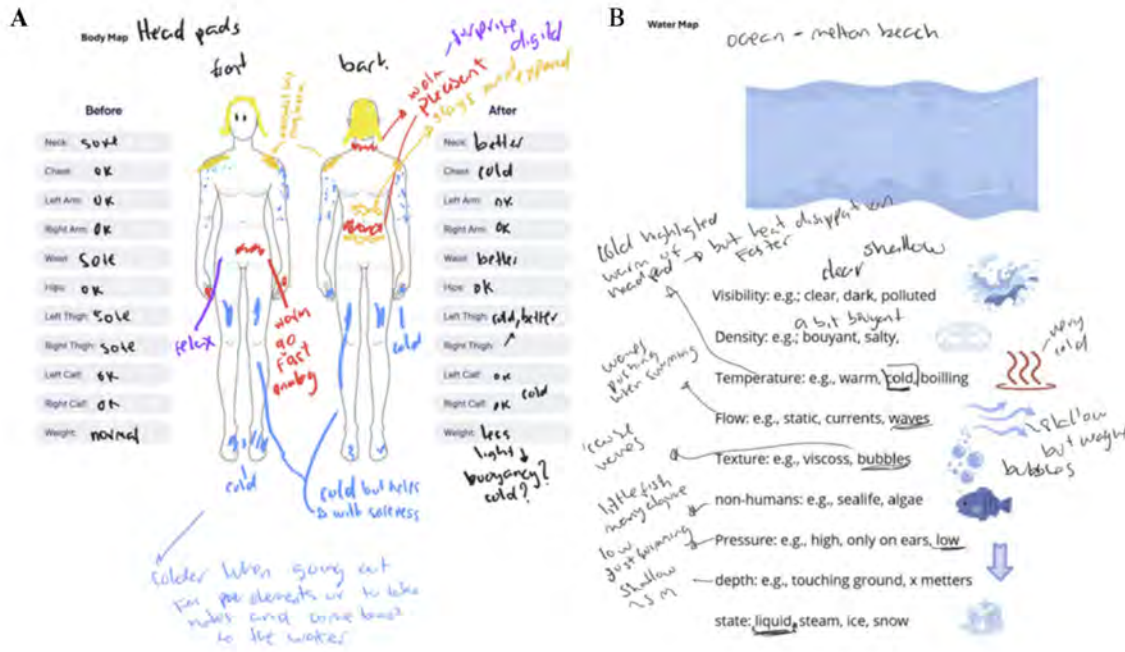 A
Body Map Head pads
front
back
surprise
digital
warm
pleasent
stays more exposed
Before
Neck: sore
Chest: OK
Left Arm: OK
Right Arm: OK
Waist: Sore
Hips: OK
Left Thigh: Sore
Right Thigh: Sore
Left Calf: OK
Right Calf: OK
Weight: normal
After
Neck: better
Chest: cold
Left Arm: OK
Right Arm: OK
Waist: better
Hips: OK
Left Thigh: cold, better
Right Thigh:
Left Calf: OK
Right Calf: OK
cold
Weight: less
light
buoyancy?
cold?
relax
warm
go
Fast
analog
cold
cold
cold but helps
with soreness
colder when going out
and come back
to the water
B
Water Map
ocean - melton beach
cold highlighted
warm of
head pad → but heat dissipation
Faster
shallow
clear
Visibility: e.g.; clear, dark, polluted
a bit
Density: e.g.; bouyant, salty,
very
cold
Temperature: e.g., warm, cold, boilling
waves
pushing
when swimming
Flow: e.g., static, currents, waves
shallow
but
bubbles
waves
Texture: e.g., viscoss, bubbles
little fish
many algine
non-humans: e.g., sealife, algae
low
Just swimming
Pressure: e.g., high, only on ears, low
shallow
depth: e.g., touching ground, x metters
state: liquid, steam, ice, snow